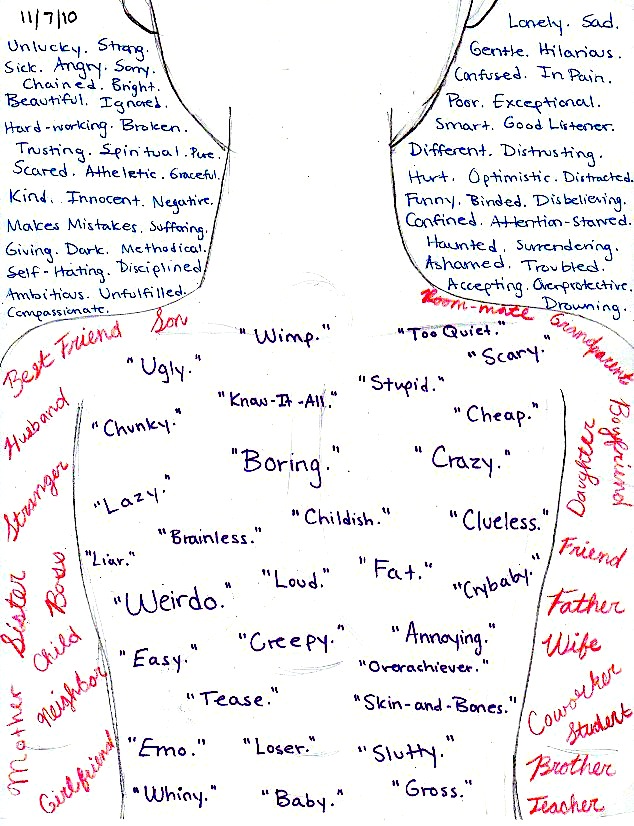 11/7/10
Unlucky. Strong.
Sick. Angry. Sorry.
Chained. Bright.
Beautiful. Ignored.
Hard-working. Broken.
Trusting. Spiritual. Pure.
Scared. Atheletic. Graceful.
Kind. Innocent. Negative.
Makes Mistakes. Suffering.
Giving. Dark. Methodical.
Self-Hating. Disciplined.
Ambitious. Unfulfilled.
Compassionate.
Lonely. Sad.
Gentle. Hilarious.
Confused. In Pain.
Poor. Exceptional.
Smart. Good Listener.
Different. Distrusting.
Hurt. Optimistic. Distracted.
Funny. Binded. Disbelieving.
Confined. Attention-Starved.
Haunted. Surrendering.
Ashamed. Troubled.
Accepting. Overprotective.
Drowning.
Best Friend
Son
Husband
Stranger
Sister
Boss
Child
Neighbor
Mother
Girlfriend
"Wimp."
"Too Quiet."
"Ugly."
"Scary."
"Know-It-All."
"Stupid."
"Chunky."
"Cheap."
"Boring."
"Crazy."
"Lazy."
"Childish."
"Clueless."
"Brainless."
"Liar."
"Loud."
"Fat."
"Crybaby."
"Weirdo."
"Creepy."
"Annoying."
"Easy."
"Overachiever."
"Tease."
"Skin-and-Bones."
"Emo."
"Loser."
"Slutty."
"Whiny."
"Baby."
"Gross."
Room-mate
Grandparent
Boyfriend
Daughter
Friend
Father
Wife
Coworker
Student
Brother
Teacher